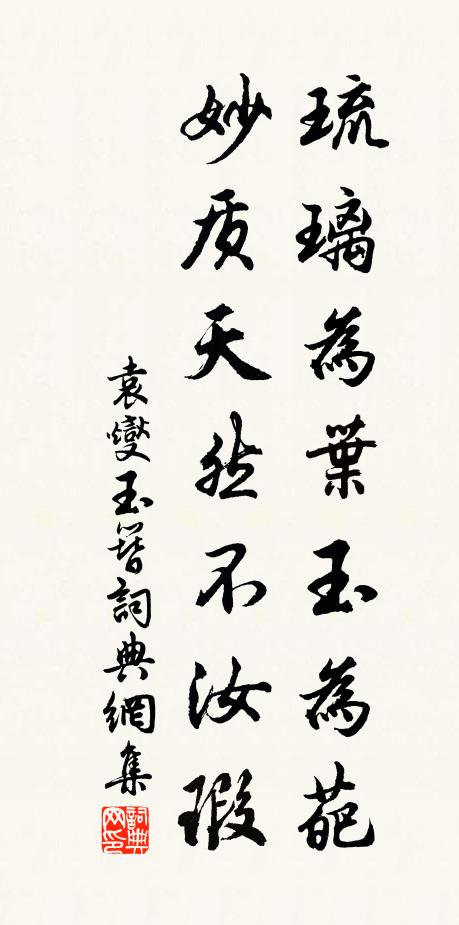 琉璃為葉玉為葩
妙质天然不汝瑕
袁燮玉簪詞典網集
詞典网印